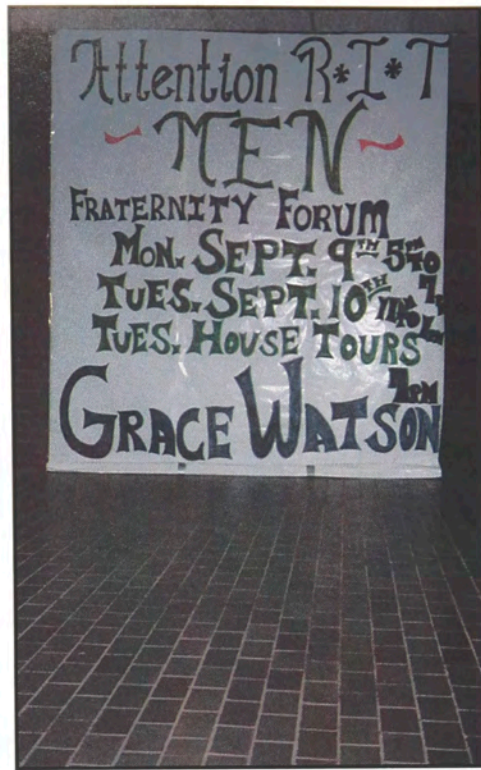 Attention R*I*T
~MEN~
FRATERNITY FORUM
MON. SEPT. 9TH 5 TO 7
TUES. SEPT. 10TH
TUES. HOUSE TOURS
7PM
GRACE WATSON